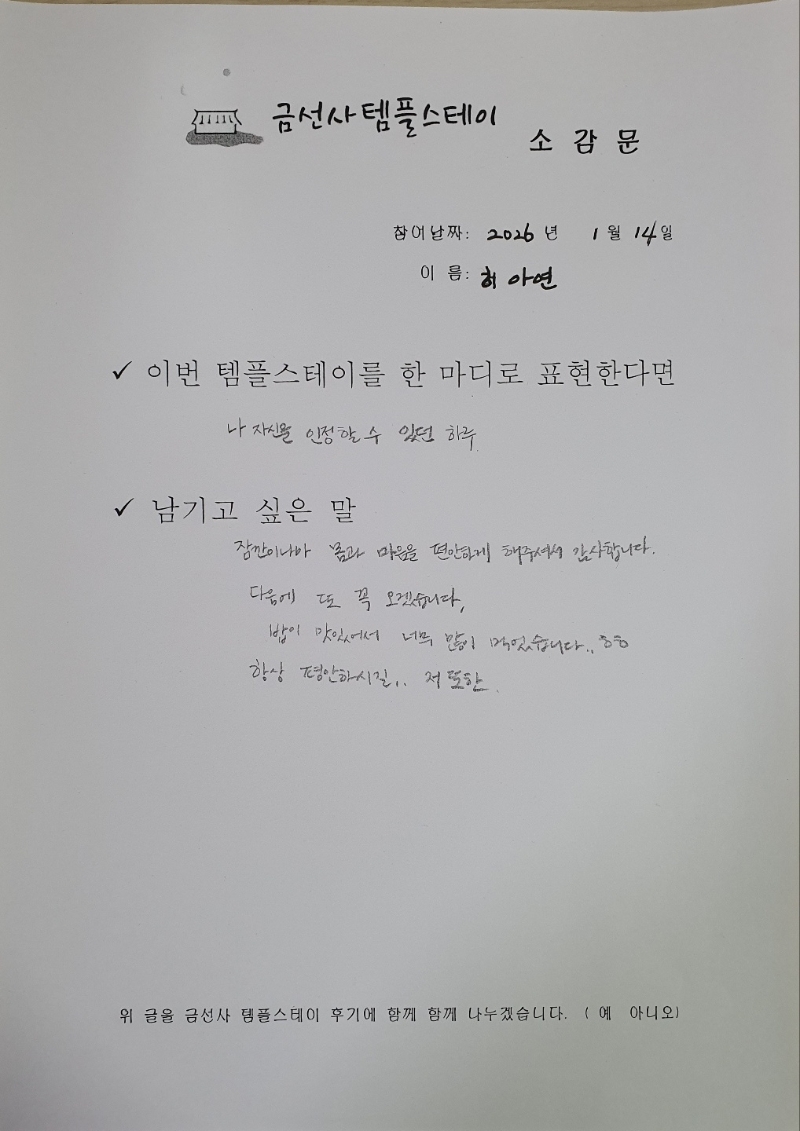 금선사템플스테이
소 감 문
참여날짜: 2026 년 1 월 14 일
이 름: 허 아연
✓ 이번 템플스테이를 한 마디로 표현한다면
나 자신을 인정할 수 있던 하루.
✓ 남기고 싶은 말
잠깐이나마 몸과 마음을 편안하게 해주셔서 감사합니다.
다음에 또 꼭 오겠습니다,
밥이 맛있어서 너무 많이 먹었습니다.. ㅎㅎ
항상 평안하시길,. 저 또한.
위 글을 금선사 템플스테이 후기에 함께 함께 나누겠습니다. ( 예 아니오)